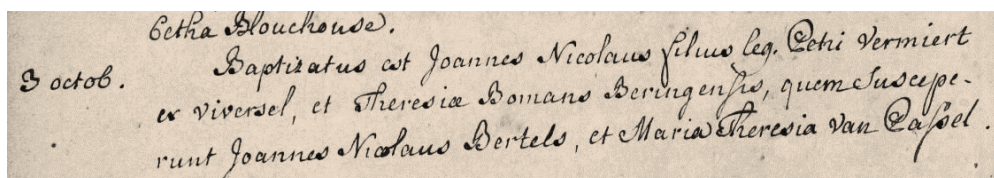 Getha Blouckouse.
3 octob. Baptizatus est Joannes Nicolaus filius leg. Petri Vermiert
ex viversel, et Theresiæ Bomans Beringensis, quem Suscepe-
runt Joannes Nicolaus Bertels, et Maria Theresia Van Cassel.